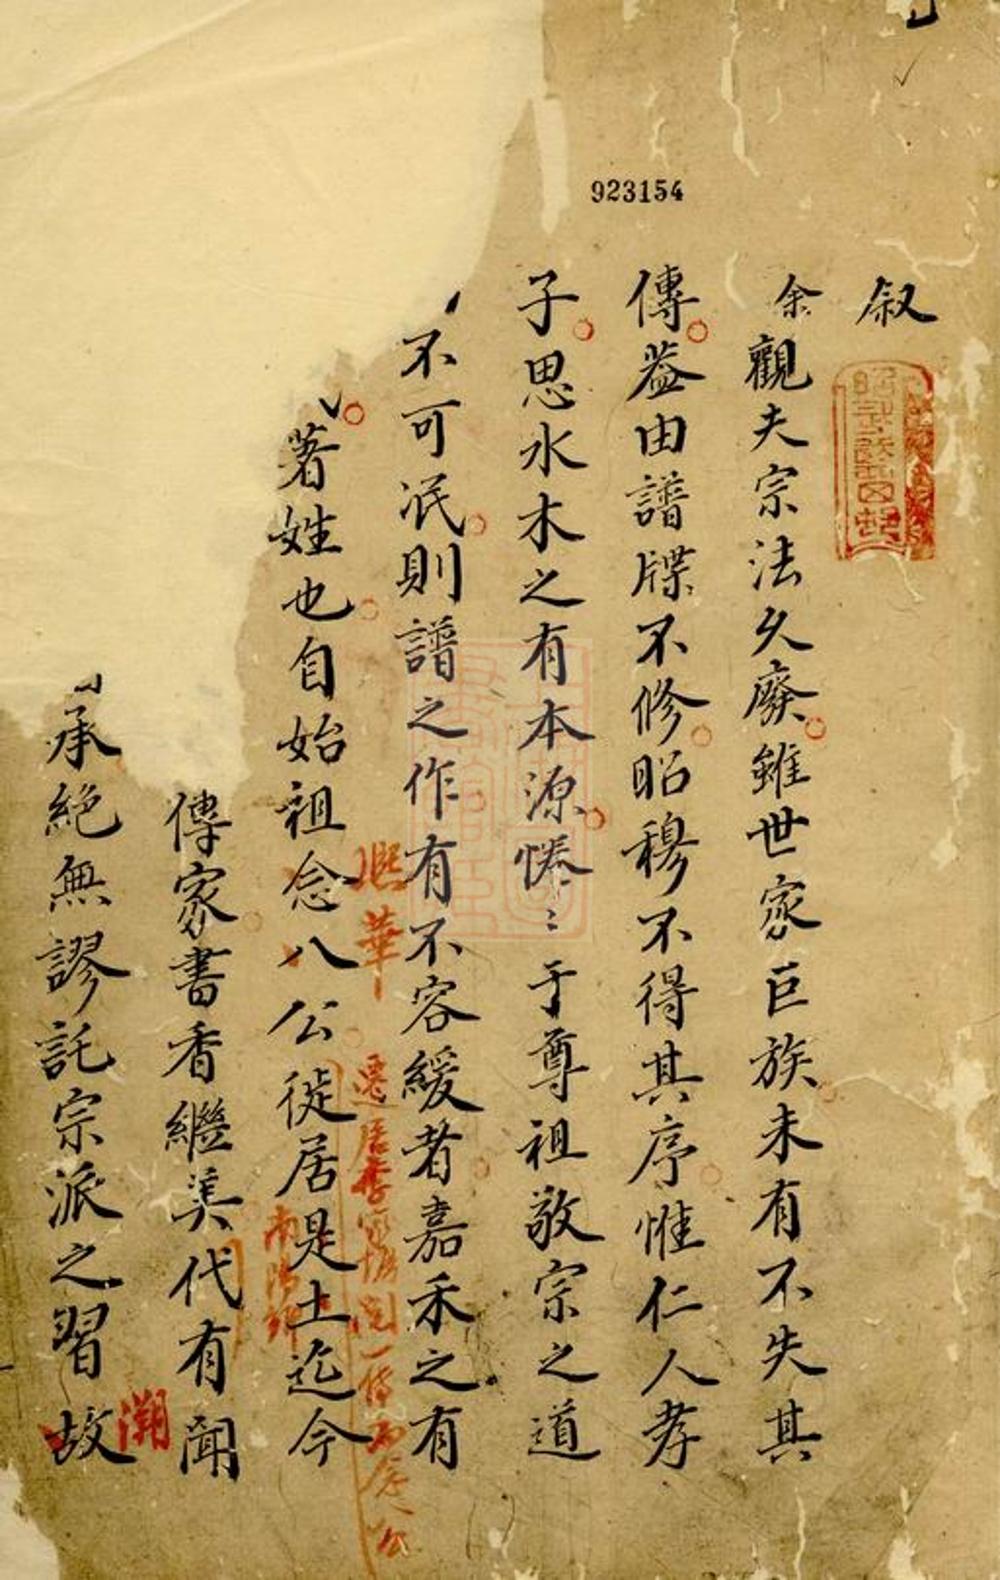 923154
叙
余觀夫宗法久廢雖世家巨族未有不失其
傳葢由譜牒不修昭穆不得其序惟仁人孝
子思水木之有本源惓〻于尊祖敬宗之道
不可泯則譜之作有不容緩者嘉禾之有
著姓也自始祖念八公徙居是土迄今
傳家書香繼美代有聞
承絶無謬託宗派之習故
華
遷居
溯